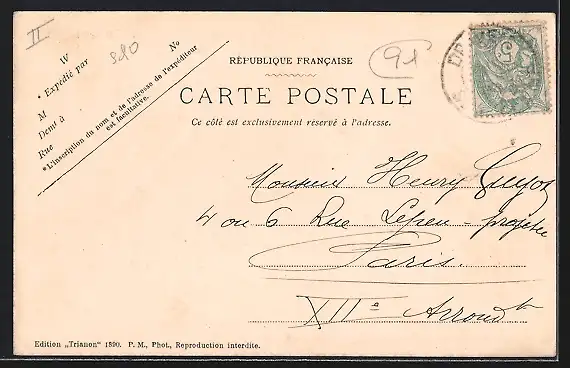 II
N° 
W
810
* Expédié par
M
Demt à
Rue
*L'inscription du nom et de l'adresse de l'expéditeur
est facultative.
RÉPUBLIQUE FRANÇAISE
91
5
CARTE POSTALE
Ce côté est exclusivement réservé à l'adresse.
Monsieur Henry Guyot
4 ou 6 Rue Lepeu - projetée
Paris.
XIIe Arrondt
Edition „Trianon" 1890. P. M., Phot., Reproduction interdite.